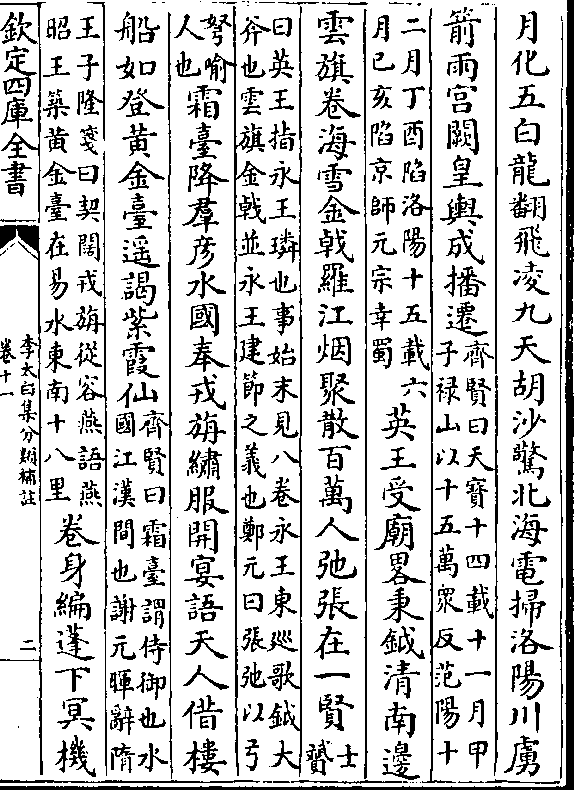 月化五白龍翻飛凌九天胡沙驚北海電掃洛陽川虜
箭雨宮闕皇輿成播遷
齊賢曰天寶十四載十一月甲
子禄山以十五萬衆反范陽十
二月丁酉陷洛陽十五載六
月已亥陷京師元宗幸蜀
英王受廟畧秉鉞清南邊
雲旗卷海雪金戟羅江烟聚散百萬人弛張在一賢
士
贇
曰英王指永王璘也事始末見八卷永王東廵歌鉞大
斧也雲旗金戟並永王建節之義也鄭元曰張弛以弓
弩喻
人也
霜臺降羣彦水國奉戎旃繡服開宴語天人借樓
船如登黄金臺遥謁紫霞仙
齊賢曰霜臺謂侍御也水
國江漢間也謝元暉辭隋
王子隆箋曰契闊戎旃從容燕語燕
昭王築黄金臺在易水東南十八里
卷身編蓬下冥機
欽定四庫全書
李太白集分類補註
卷十一
二